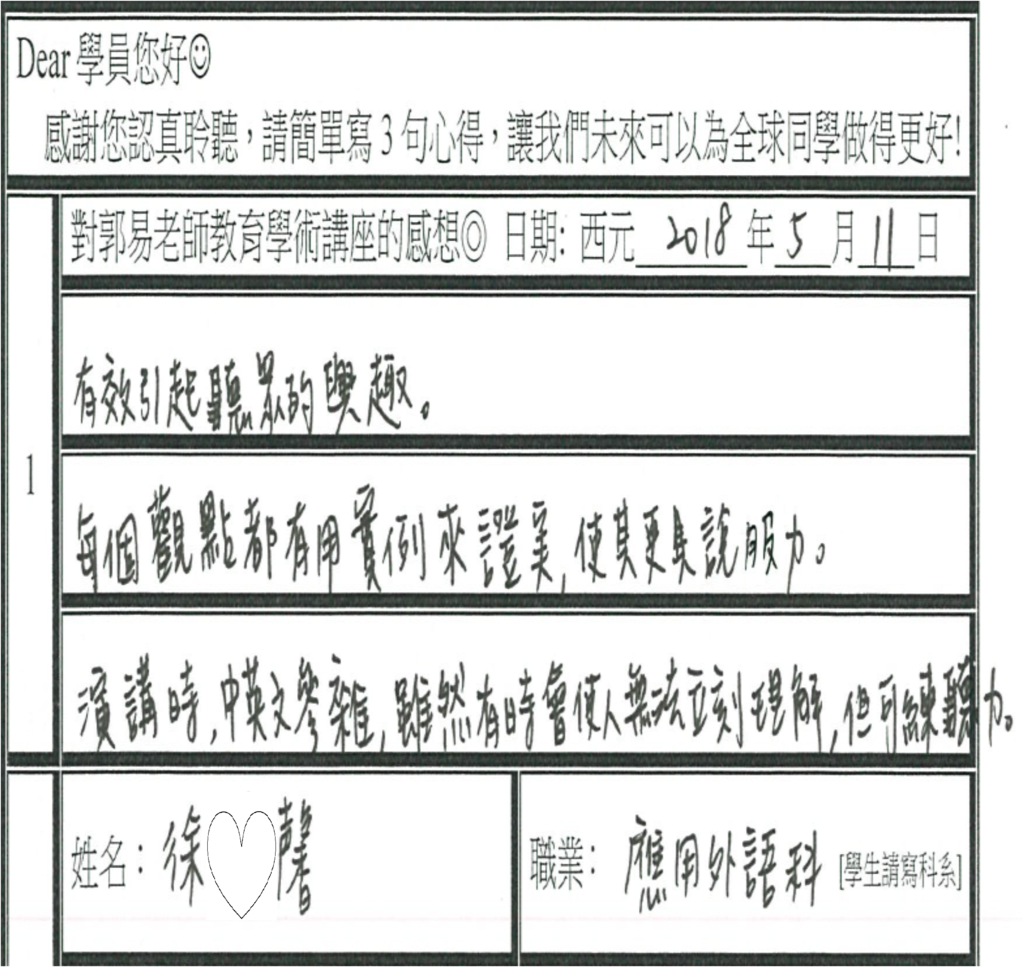 Dear 學員您好☺
感謝您認真聆聽，請簡單寫 3 句心得，讓我們未來可以為全球同學做得更好!
對郭易老師教育學術講座的感想◎ 日期: 西元 2018 年 5 月 11 日
有效引起聽眾的興趣。
1
每個觀點都有用實例來證實, 使其更具說服力。
演講時, 中英文參雜, 雖然有時會使人無法立刻理解, 但可練聽力。
姓名： 徐♡馨 職業： 應用外語科 [學生請寫科系]